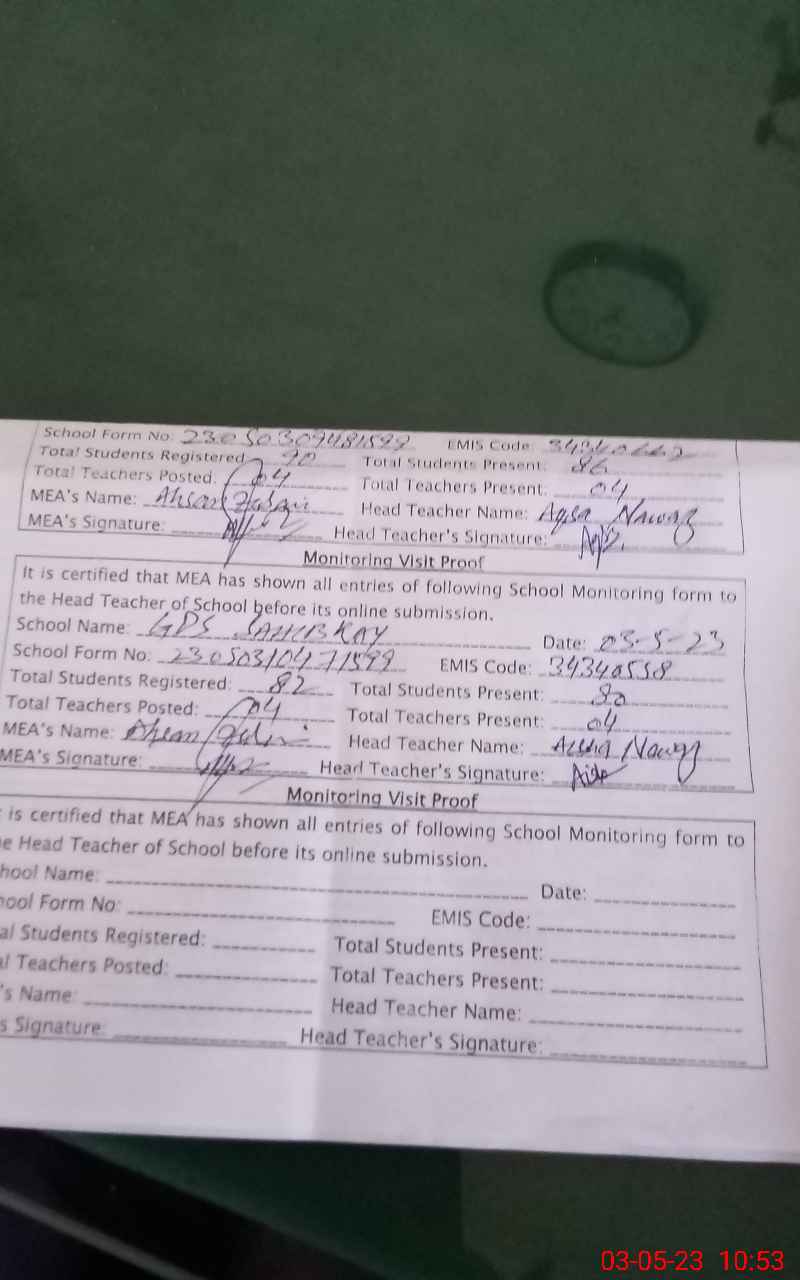 School Form No: 23050309481599 EMIS Code:
Total Students Registered 90 Total Students Present: 86
Total Teachers Posted: 04 Total Teachers Present: 04
MEA's Name: Ahsan Head Teacher Name: Aqsa Nawaz
MEA's Signature: Head Teacher's Signature:
Monitoring Visit Proof
It is certified that MEA has shown all entries of following School Monitoring form to
the Head Teacher of School before its online submission.
School Name: GPS Date: 03-5-23
School Form No: 23050310471599 EMIS Code: 34340558
Total Students Registered: 82 Total Students Present: 80
Total Teachers Posted: 04 Total Teachers Present: 04
MEA's Name: Ahsan Head Teacher Name: Nawaz
MEA's Signature: Head Teacher's Signature:
Monitoring Visit Proof
is certified that MEA has shown all entries of following School Monitoring form to
e Head Teacher of School before its online submission.
hool Name: Date:
hool Form No: EMIS Code:
al Students Registered: Total Students Present:
al Teachers Posted: Total Teachers Present:
's Name: Head Teacher Name:
s Signature: Head Teacher's Signature:
03-05-23 10:53